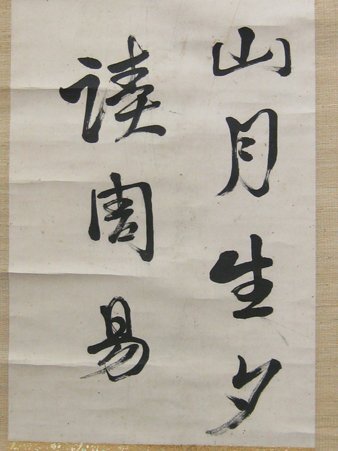 山月生夕
读周易